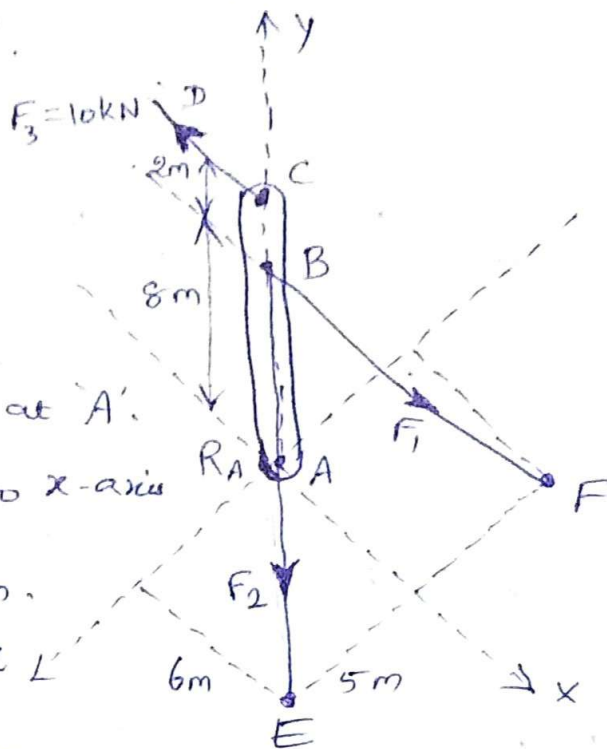 y
F₃=10kN D
2m
C
B
8m
at A.
F₁
R_A A
o x-axis
F
F₂
n.
L
6m 5m
x
E